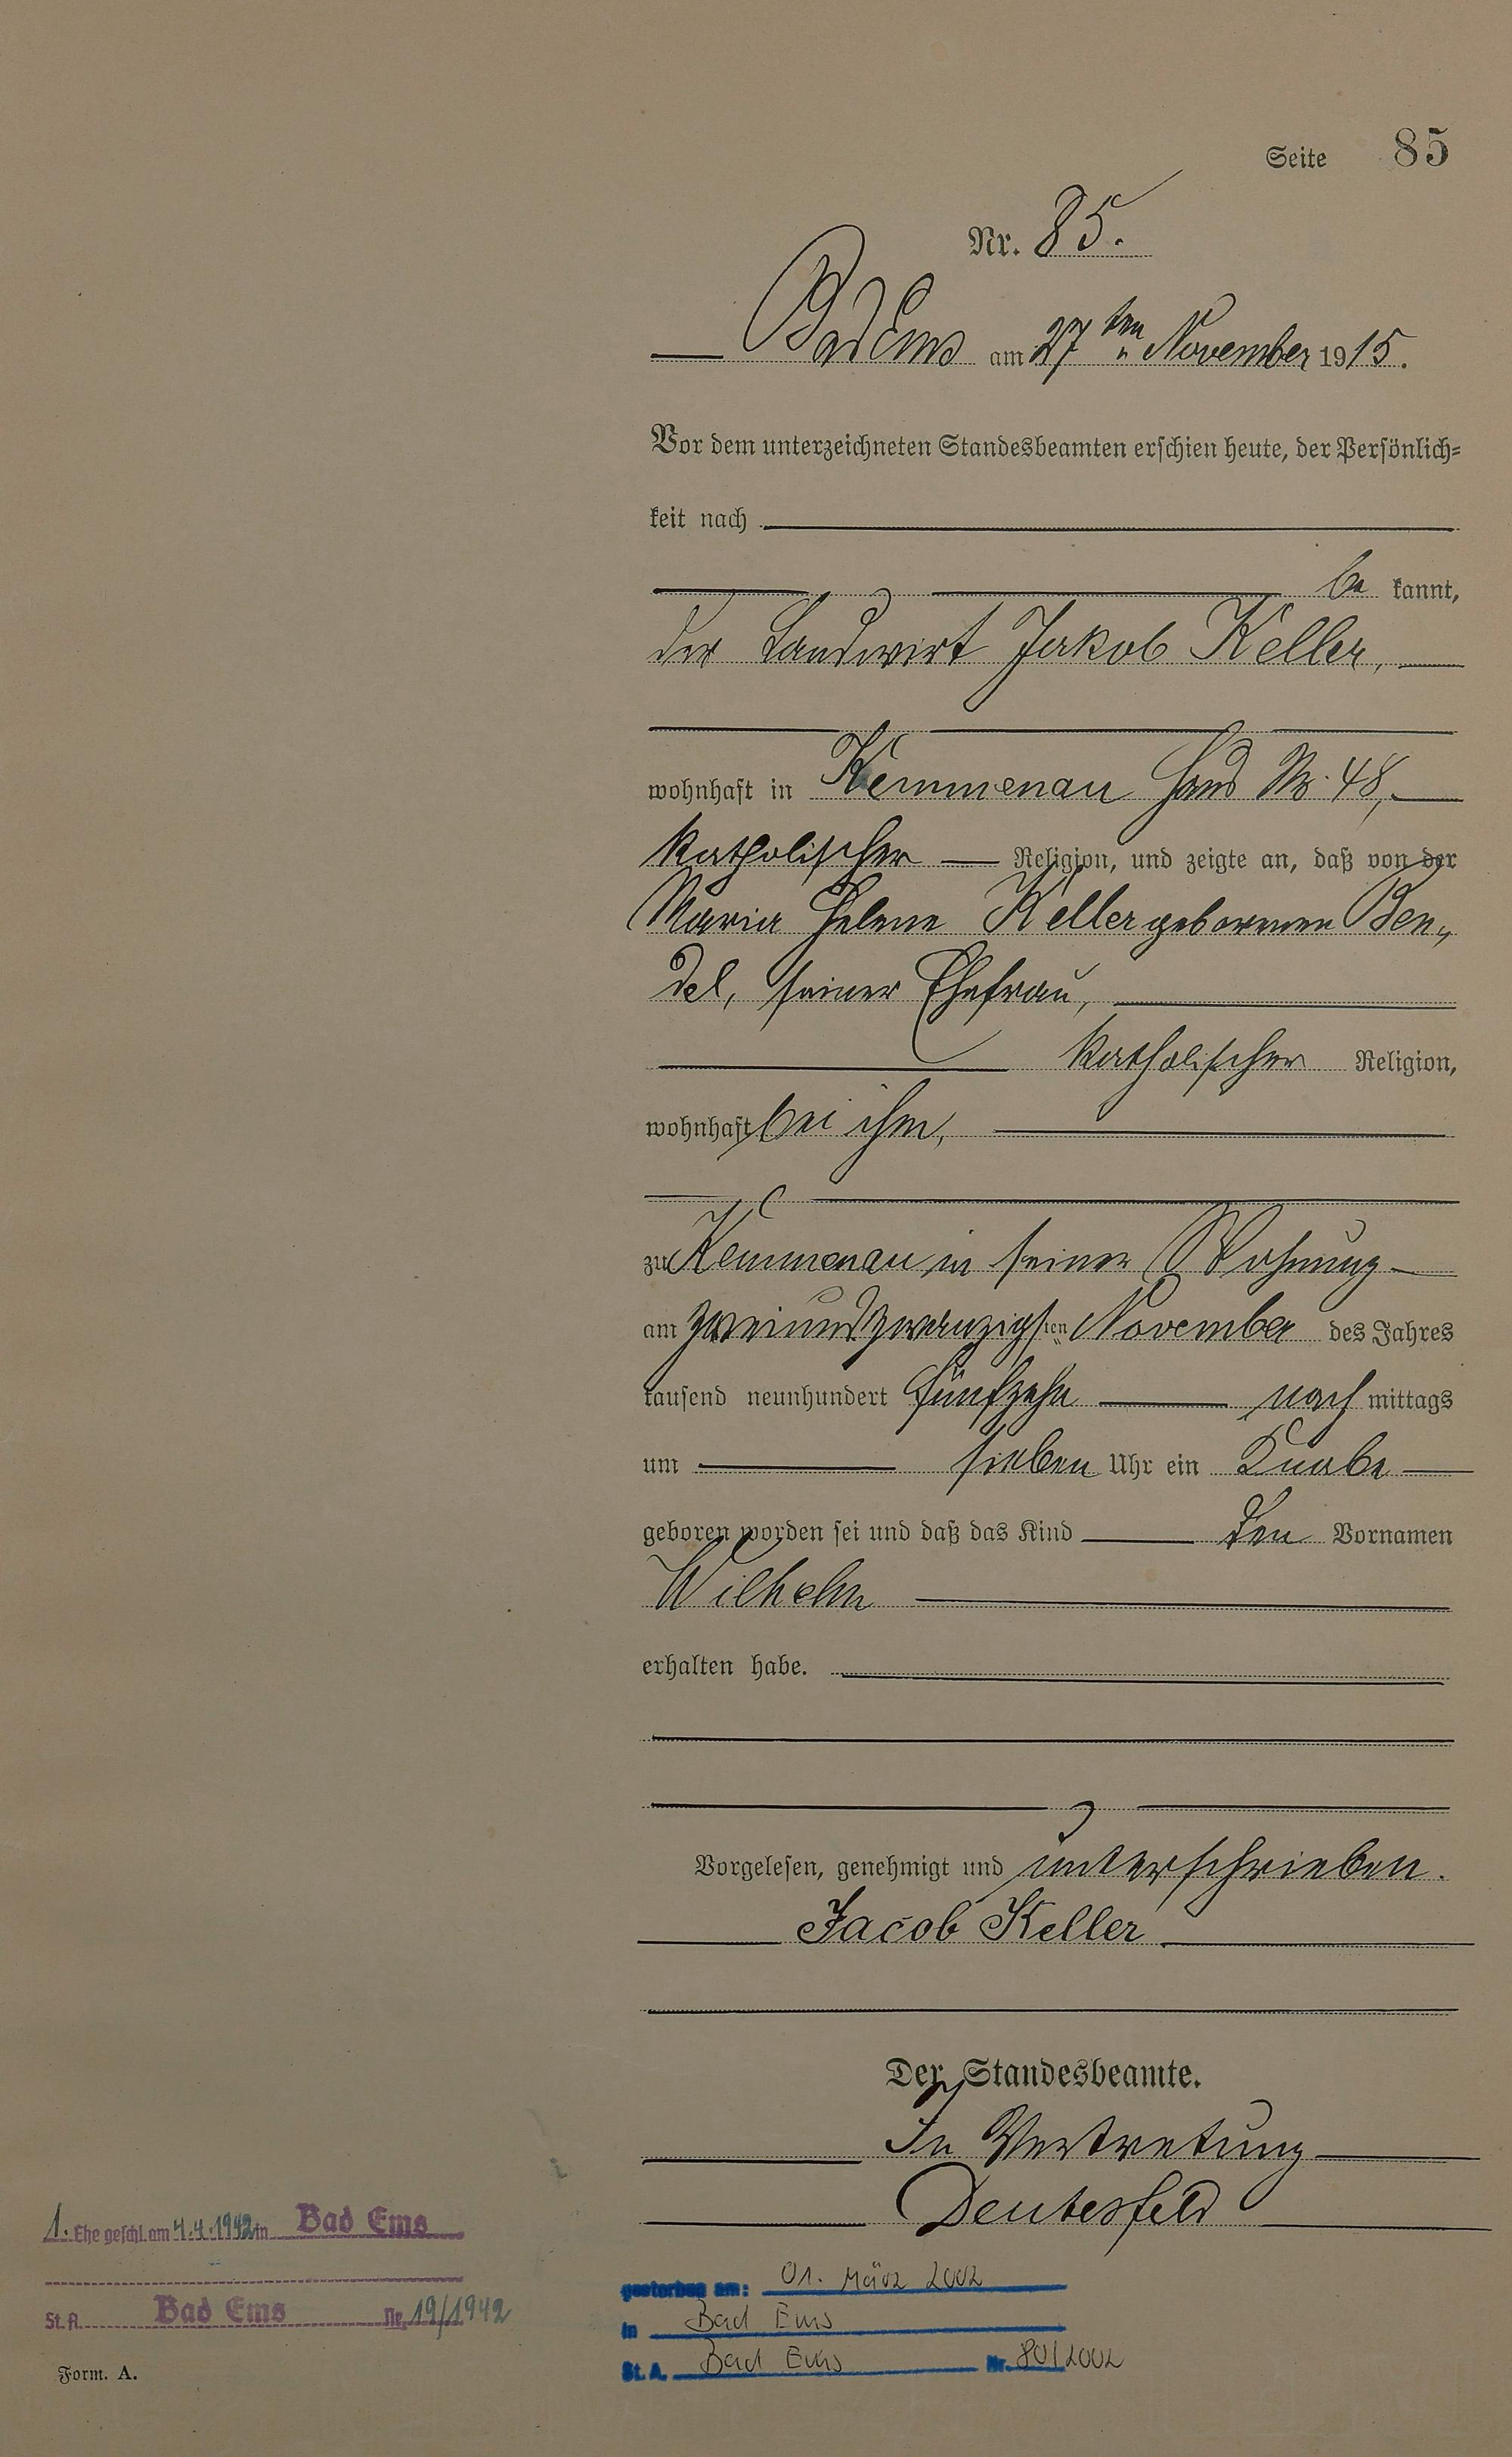 Seite 85
Nr. 85.
Bad Ems am 27ten November 1915.
Vor dem unterzeichneten Standesbeamten erschien heute, der Persönlich=
keit nach
be kannt,
der Landwirt Jakob Keller,
wohnhaft in Kemmenau Haus Nr. 48,
katholischer Religion, und zeigte an, daß von der
Maria Helene Keller geborenen Ben„
del, seiner Ehefrau,
katholischer Religion,
wohnhaft bei ihm,
zu Kemmenau in seiner Wohnung
am zweiundzwanzigsten November des Jahres
tausend neunhundert fünfzehn nach mittags
um sieben Uhr ein Knabe
geboren worden sei und daß das Kind den Vornamen
Wilhelm
erhalten habe.
Vorgelesen, genehmigt und unterschrieben.
Jacob Keller
Der Standesbeamte.
In Vertretung
Deutesfeld
1. Ehe geschl. am 4.4.1942 in Bad Ems
St. A. Bad Ems Nr. 19/1942
Form. A.
gestorben am: 01. März 2002
in Bad Ems
St. A. Bad Ems Nr. 80/2002